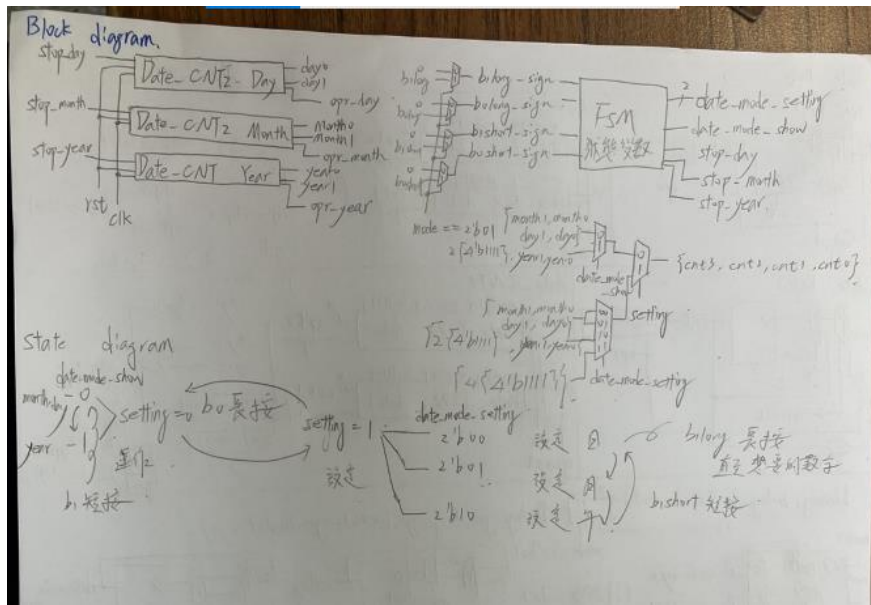 Block diagram.
stop_day
Date_CNT2_Day
day0
day1
opr_day
stop_month
Date_CNT2 Month
month0
month1
opr_month
stop_year
Date_CNT Year
year0
year1
opr_year
rst
clk
0
bilong
bilong_sign
0
bolong_sign
0
bishort_sign
0
boshort_sign
FSM
2
date_mode_setting
date_mode_show
stop_day
stop_month
stop_year
mode == 2'b01
{month1, month0
day1, day0}
2{4'b1111}, year1, year0
date_mode
_show
{cnt3, cnt2, cnt1, cnt0}
{month1, month0
day1, day0}
setting
{2{4'b1111}, year1, year0}
{4{4'b1111}}
date_mode_setting
State diagram
date_mode_show
month,day
0
year
1
setting=0
b0 長按
b1 短按
setting = 1
設定
date_mode_setting
2'b00 設定 日
2'b01 設定 月
2'b10 設定 年
bilong 長按
直至想要的數字
bishort 短按